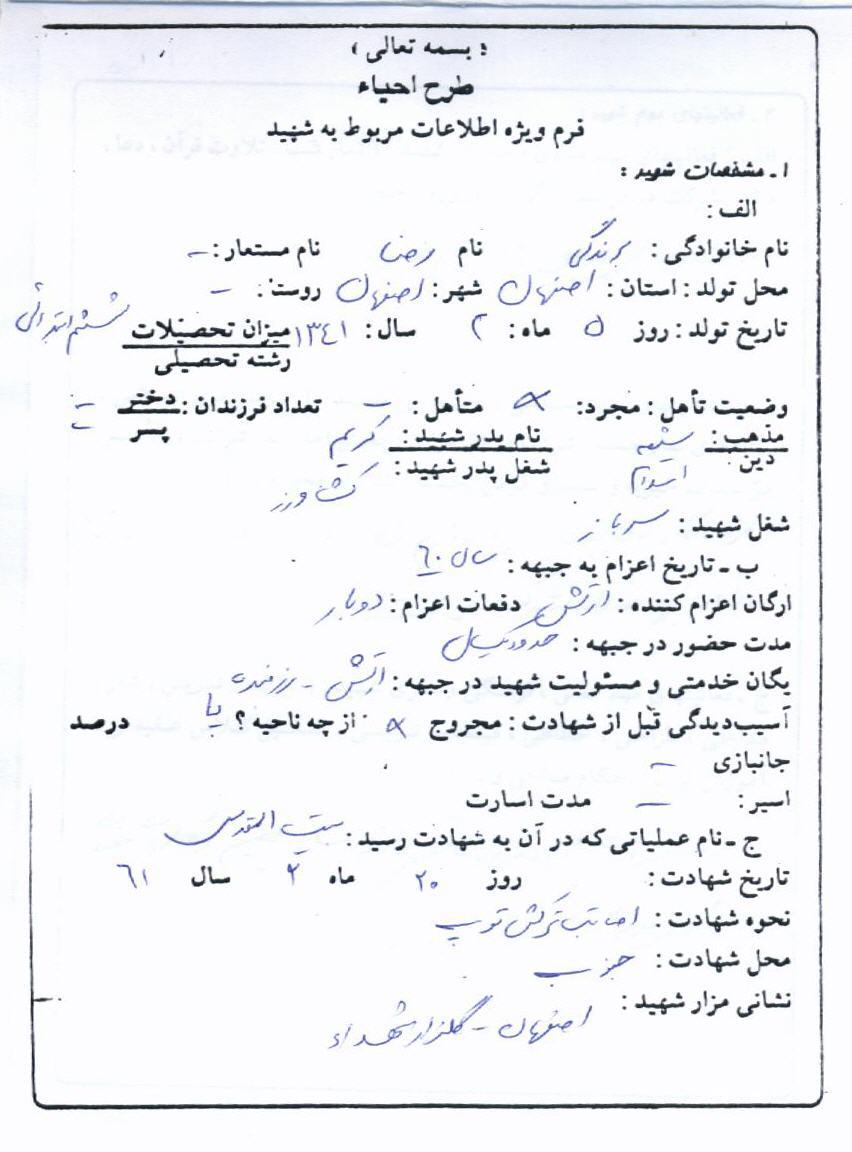 « بسمه تعالی »
طرح احیاء
فرم ویژه اطلاعات مربوط به شهید
۱ـ مشخصات شهید :
الف :
نام خانوادگی : برندگی نام رضا نام مستعار : –
محل تولد : استان : اصفهان شهر : اصفهان روستا : –
تاریخ تولد : روز ۵ ماه : ۲ سال : ۱۳۴۱ میزان تحصیلات ششم ابتدائی
رشته تحصیلی
وضعیت تأهل : مجرد : × متأهل : – تعداد فرزندان : دختر –
پسر –
مذهب : شیعه نام پدر شهید : کریم
دین : اسلام شغل پدر شهید : کشاورز
شغل شهید : سرباز
ب ـ تاریخ اعزام به جبهه : سال ۶۰
ارگان اعزام کننده : ارتش دفعات اعزام : دوبار
مدت حضور در جبهه : حدود یکسال
یگان خدمتی و مسئولیت شهید در جبهه : ارتش - رزمنده
آسیب‌دیدگی قبل از شهادت : مجروح × از چه ناحیه ؟ پا درصد
جانبازی –
اسیر : – مدت اسارت
ج ـ نام عملیاتی که در آن به شهادت رسید : بیت المقدس
تاریخ شهادت : روز ۲۰ ماه ۲ سال ۶۱
نحوه شهادت : اصابت ترکش توپ
محل شهادت : جنوب
نشانی مزار شهید : اصفهان - گلزار شهداء